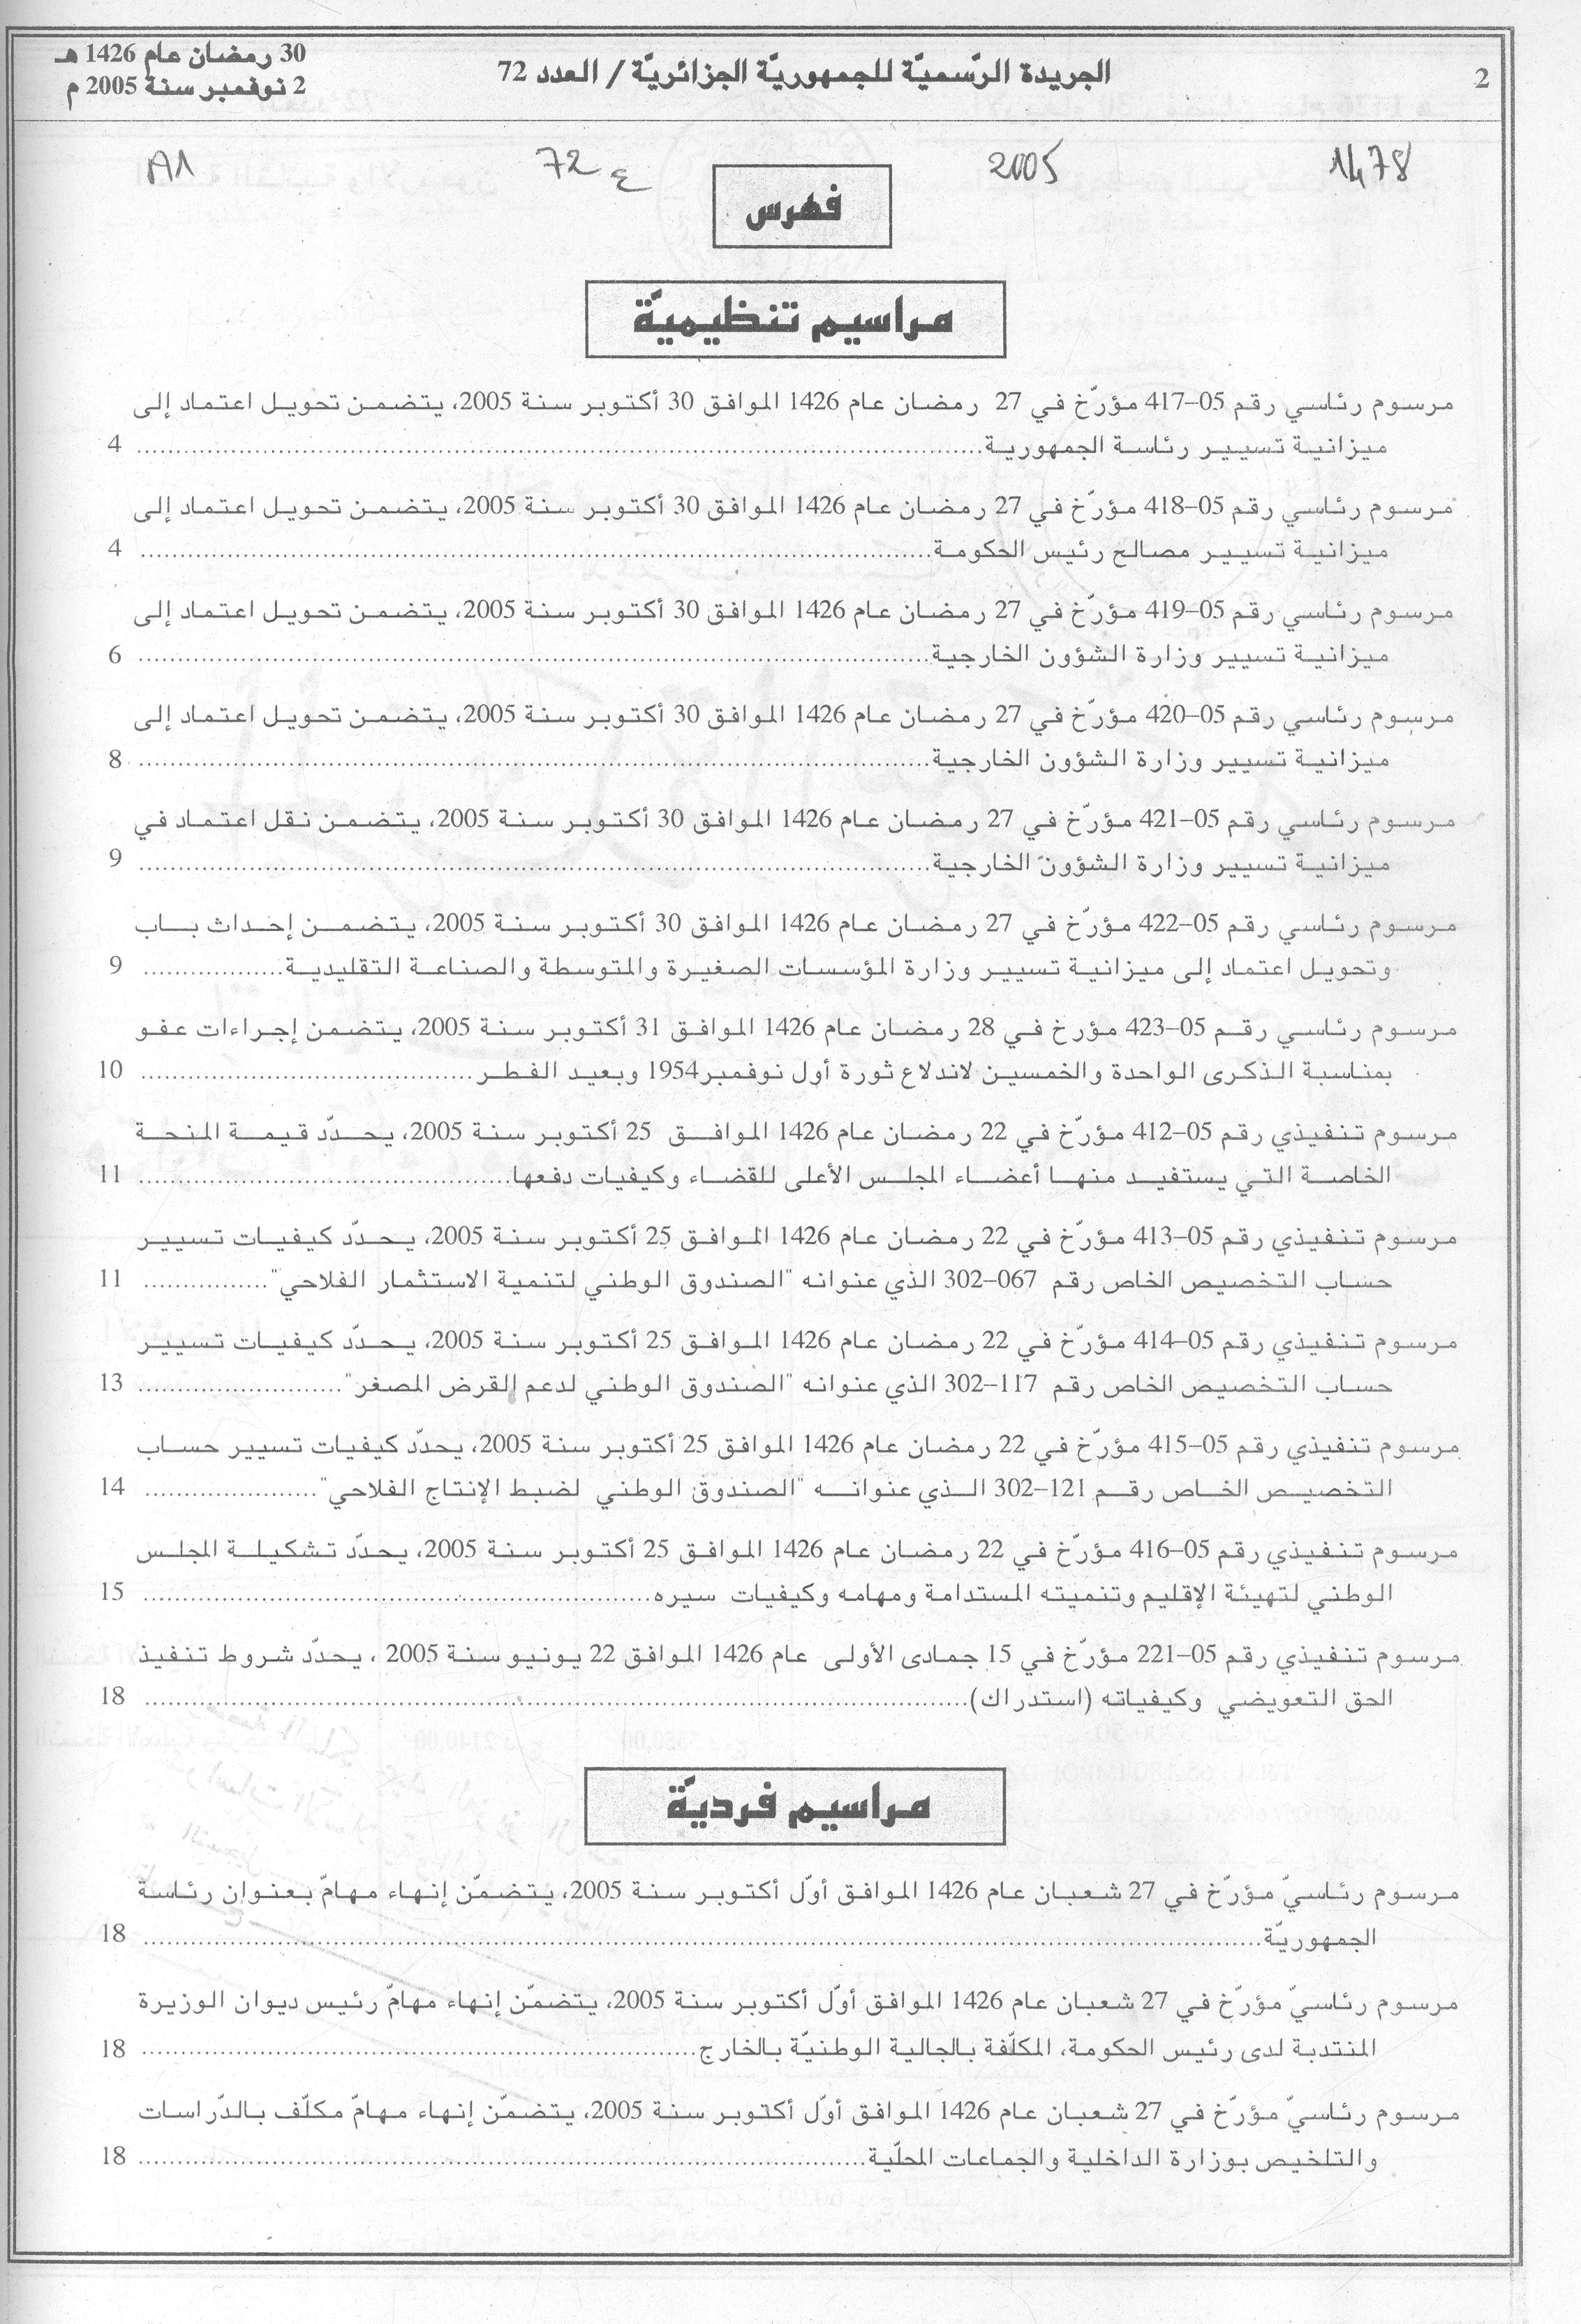 2
الجريدة الرّسميّة للجمهوريّة الجزائريّة / العدد 72
30 رمضان عام 1426 هـ
2 نوفمبر سنة 2005 م
1478
2005
72 ع
A1
فهرس
مراسيم تنظيميّة
مرسوم رئاسي رقم 05-417 مؤرّخ في 27 رمضان عام 1426 الموافق 30 أكتوبر سنة 2005، يتضمن تحويل اعتماد إلى
ميزانية تسيير رئاسة الجمهورية........................ 4
مرسوم رئاسي رقم 05-418 مؤرّخ في 27 رمضان عام 1426 الموافق 30 أكتوبر سنة 2005، يتضمن تحويل اعتماد إلى
ميزانية تسيير مصالح رئيس الحكومة........................ 4
مرسوم رئاسي رقم 05-419 مؤرّخ في 27 رمضان عام 1426 الموافق 30 أكتوبر سنة 2005، يتضمن تحويل اعتماد إلى
ميزانية تسيير وزارة الشؤون الخارجية........................ 6
مرسوم رئاسي رقم 05-420 مؤرّخ في 27 رمضان عام 1426 الموافق 30 أكتوبر سنة 2005، يتضمن تحويل اعتماد إلى
ميزانية تسيير وزارة الشؤون الخارجية........................ 8
مرسوم رئاسي رقم 05-421 مؤرّخ في 27 رمضان عام 1426 الموافق 30 أكتوبر سنة 2005، يتضمن نقل اعتماد في
ميزانية تسيير وزارة الشؤون الخارجية........................ 9
مرسوم رئاسي رقم 05-422 مؤرّخ في 27 رمضان عام 1426 الموافق 30 أكتوبر سنة 2005، يتضمن إحداث باب
وتحويل اعتماد إلى ميزانية تسيير وزارة المؤسسات الصغيرة والمتوسطة والصناعة التقليدية.................. 9
مرسوم رئاسي رقم 05-423 مؤرخ في 28 رمضان عام 1426 الموافق 31 أكتوبر سنة 2005، يتضمن إجراءات عفو
بمناسبة الذكرى الواحدة والخمسين لاندلاع ثورة أول نوفمبر1954 وبعيد الفطر........................ 10
مرسوم تنفيذي رقم 05-412 مؤرّخ في 22 رمضان عام 1426 الموافق 25 أكتوبر سنة 2005، يحدّد قيمة المنحة
الخاصة التي يستفيد منها أعضاء المجلس الأعلى للقضاء وكيفيات دفعها........................ 11
مرسوم تنفيذي رقم 05-413 مؤرّخ في 22 رمضان عام 1426 الموافق 25 أكتوبر سنة 2005، يحدّد كيفيات تسيير
حساب التخصيص الخاص رقم 067-302 الذي عنوانه "الصندوق الوطني لتنمية الاستثمار الفلاحي"................ 11
مرسوم تنفيذي رقم 05-414 مؤرّخ في 22 رمضان عام 1426 الموافق 25 أكتوبر سنة 2005، يحدّد كيفيات تسيير
حساب التخصيص الخاص رقم 117-302 الذي عنوانه "الصندوق الوطني لدعم القرض المصغر"........................ 13
مرسوم تنفيذي رقم 05-415 مؤرّخ في 22 رمضان عام 1426 الموافق 25 أكتوبر سنة 2005، يحدّد كيفيات تسيير حساب
التخصيص الخاص رقم 121-302 الذي عنوانه "الصندوق الوطني لضبط الإنتاج الفلاحي"...................... 14
مرسوم تنفيذي رقم 05-416 مؤرّخ في 22 رمضان عام 1426 الموافق 25 أكتوبر سنة 2005، يحدّد تشكيلة المجلس
الوطني لتهيئة الإقليم وتنميته المستدامة ومهامه وكيفيات سيره........................ 15
مرسوم تنفيذي رقم 05-221 مؤرّخ في 15 جمادى الأولى عام 1426 الموافق 22 يونيو سنة 2005 ، يحدّد شروط تنفيذ
الحق التعويضي وكيفياته (استدراك)........................ 18
مراسيم فرديّة
مرسوم رئاسيّ مؤرّخ في 27 شعبان عام 1426 الموافق أوّل أكتوبر سنة 2005، يتضمّن إنهاء مهامّ بعنوان رئاسة
الجمهوريّة........................ 18
مرسوم رئاسيّ مؤرّخ في 27 شعبان عام 1426 الموافق أوّل أكتوبر سنة 2005، يتضمّن إنهاء مهامّ رئيس ديوان الوزيرة
المنتدبة لدى رئيس الحكومة، المكلّفة بالجالية الوطنيّة بالخارج........................ 18
مرسوم رئاسيّ مؤرّخ في 27 شعبان عام 1426 الموافق أوّل أكتوبر سنة 2005، يتضمّن إنهاء مهامّ مكلّف بالدّراسات
والتلخيص بوزارة الداخلية والجماعات المحلّية........................ 18